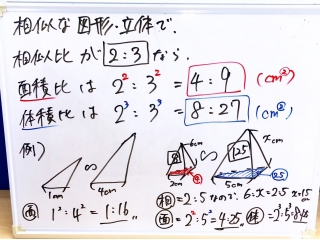 相似な図形・立体で、
相似比が 2:3 なら、
面積比は 2²:3² = 4:9 (cm²)
体積比は 2³:3³ = 8:27 (cm³)
例)
∽
1cm
4cm
面 1²:4² = 1:16 〃
∽
8
6cm
2cm
④
125
xcm
5cm
㉕
相=2:5 なので、6:x=2:5 x=15cm
面=2²:5²=4:25〃 体=2³:5³=8:125